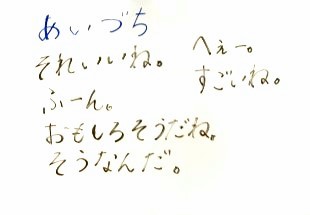 めいづち
それいいね。
ふーん。
おもしろそうだね。
そうなんだ。
へぇー。
すごいね。